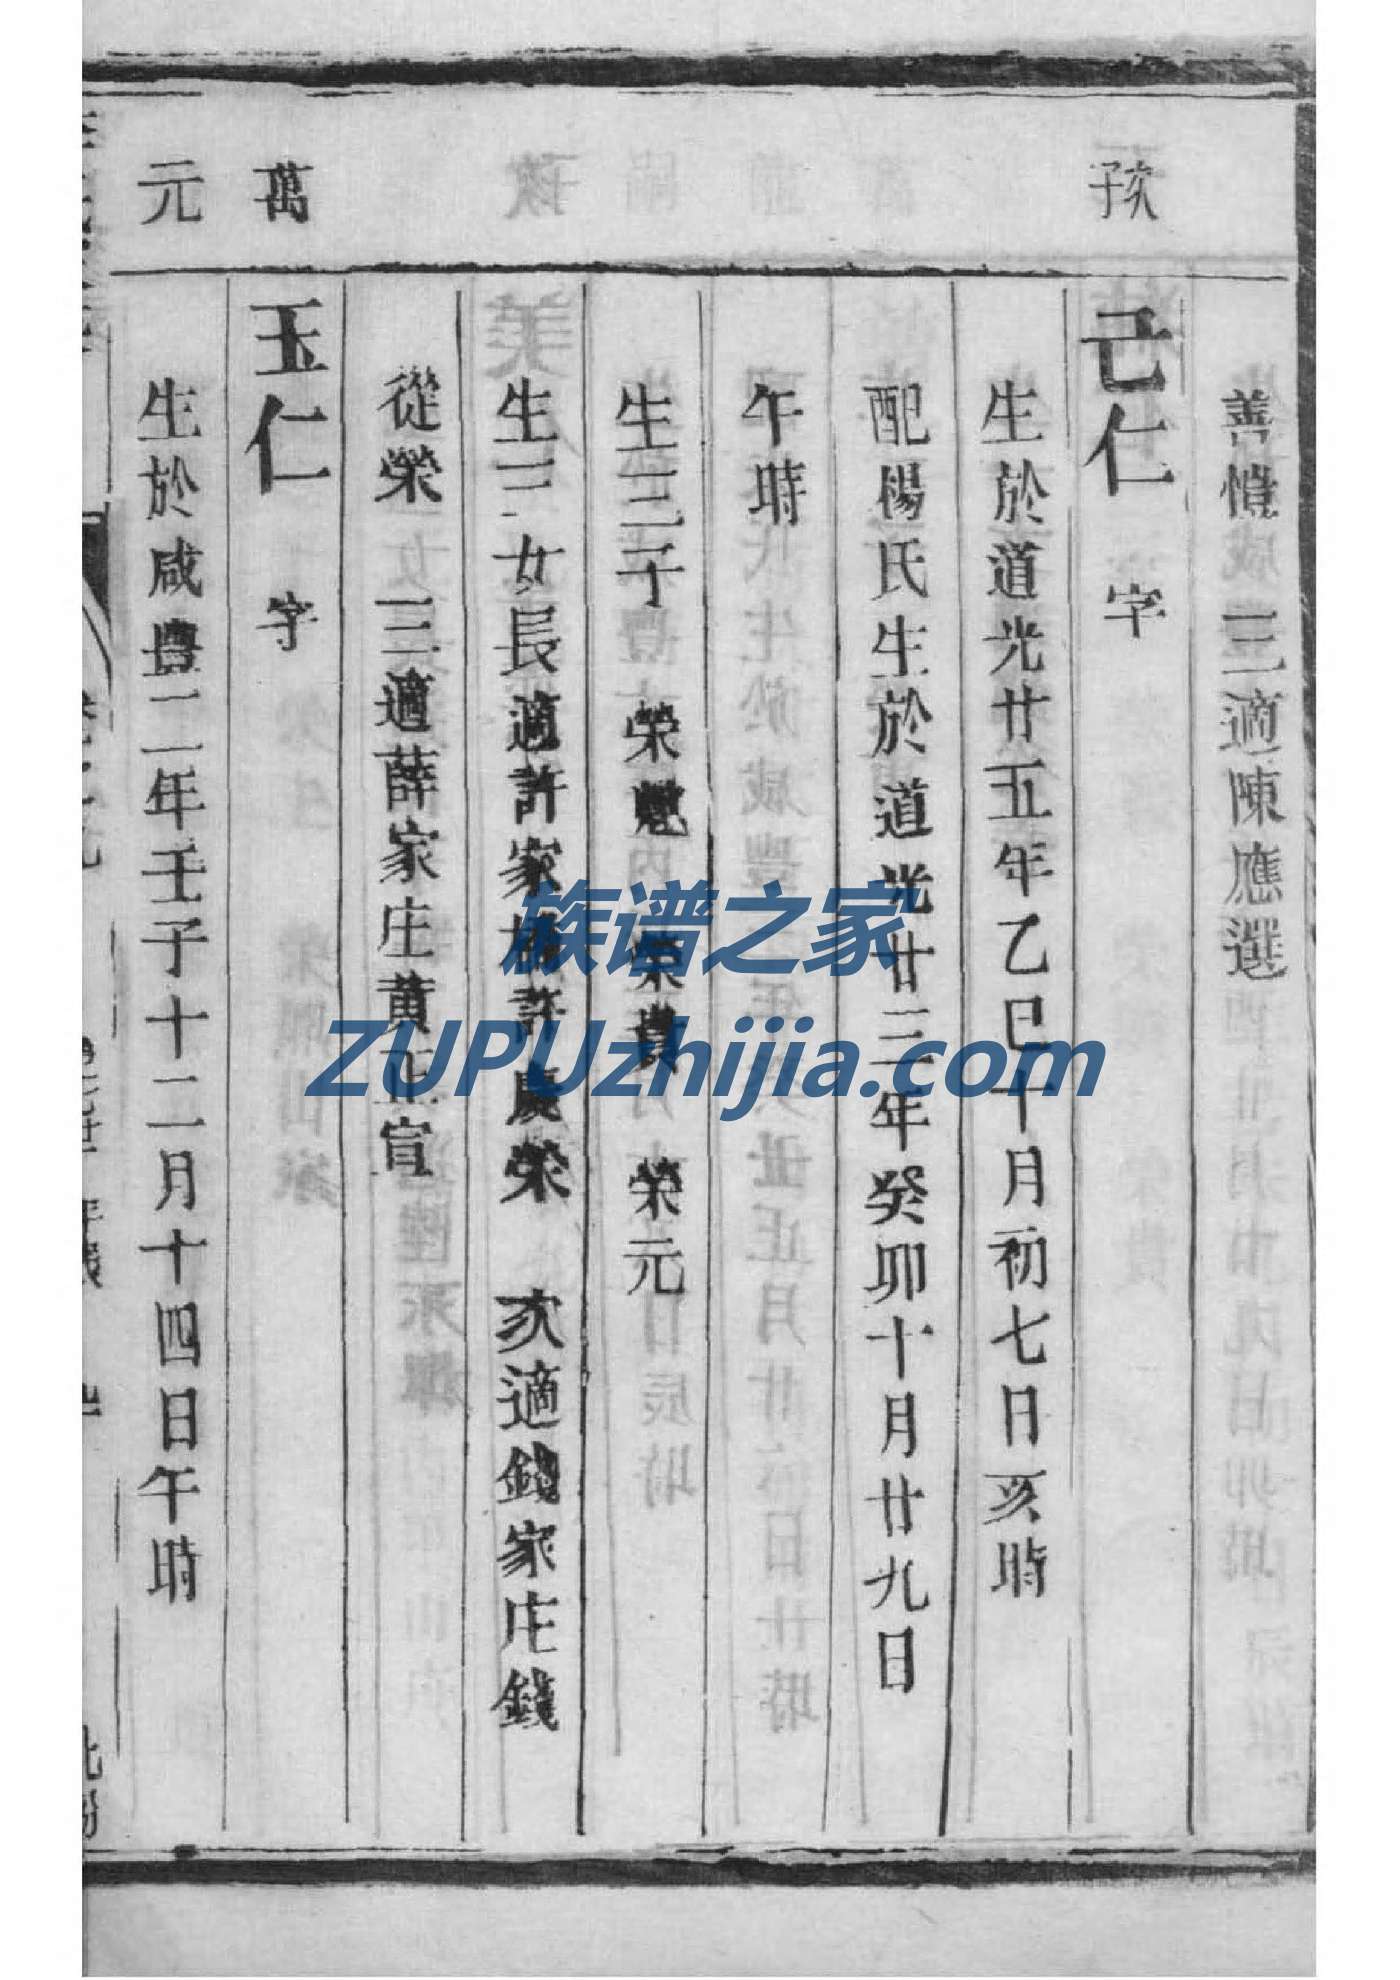 孩
萬
元
善愷 三適陳應選
己仁 字
生於道光廿五年乙巳十月初七日亥時
配楊氏生於道光廿三年癸卯十月廿九日
午時
生三子 榮 榮 榮元
生三女長適許家 許慶榮 次適錢家庄錢
從榮 三適薛家庄黄正宣
玉仁 字
生於咸豊二年壬子十二月十四日午時
族谱之家
ZUPUzhijia.com